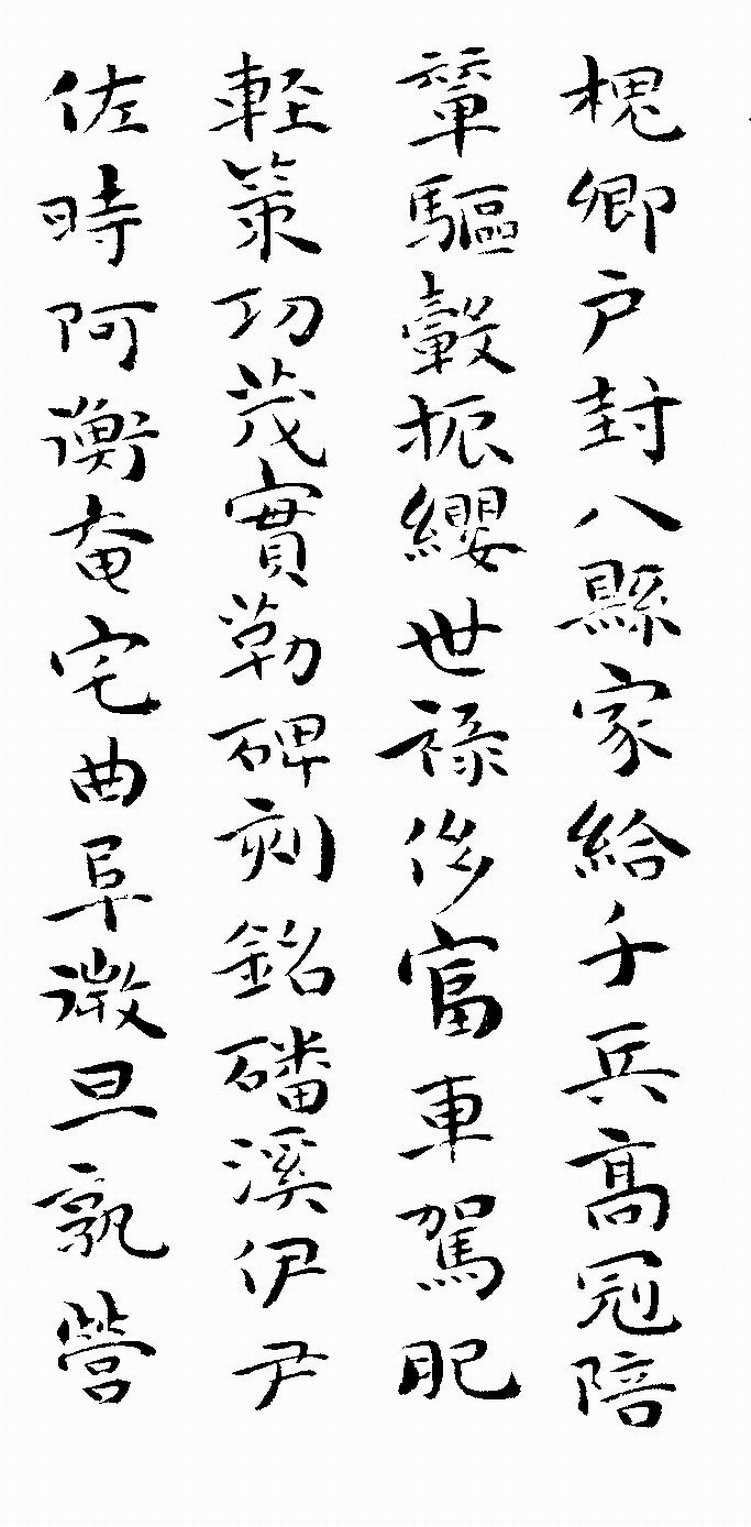 槐卿户封八縣家給千兵高冠陪
輦驅轂振纓世禄侈富車駕肥
軽策功茂實勒碑刻銘磻溪伊尹
佐時阿衡奄宅曲阜微旦孰營